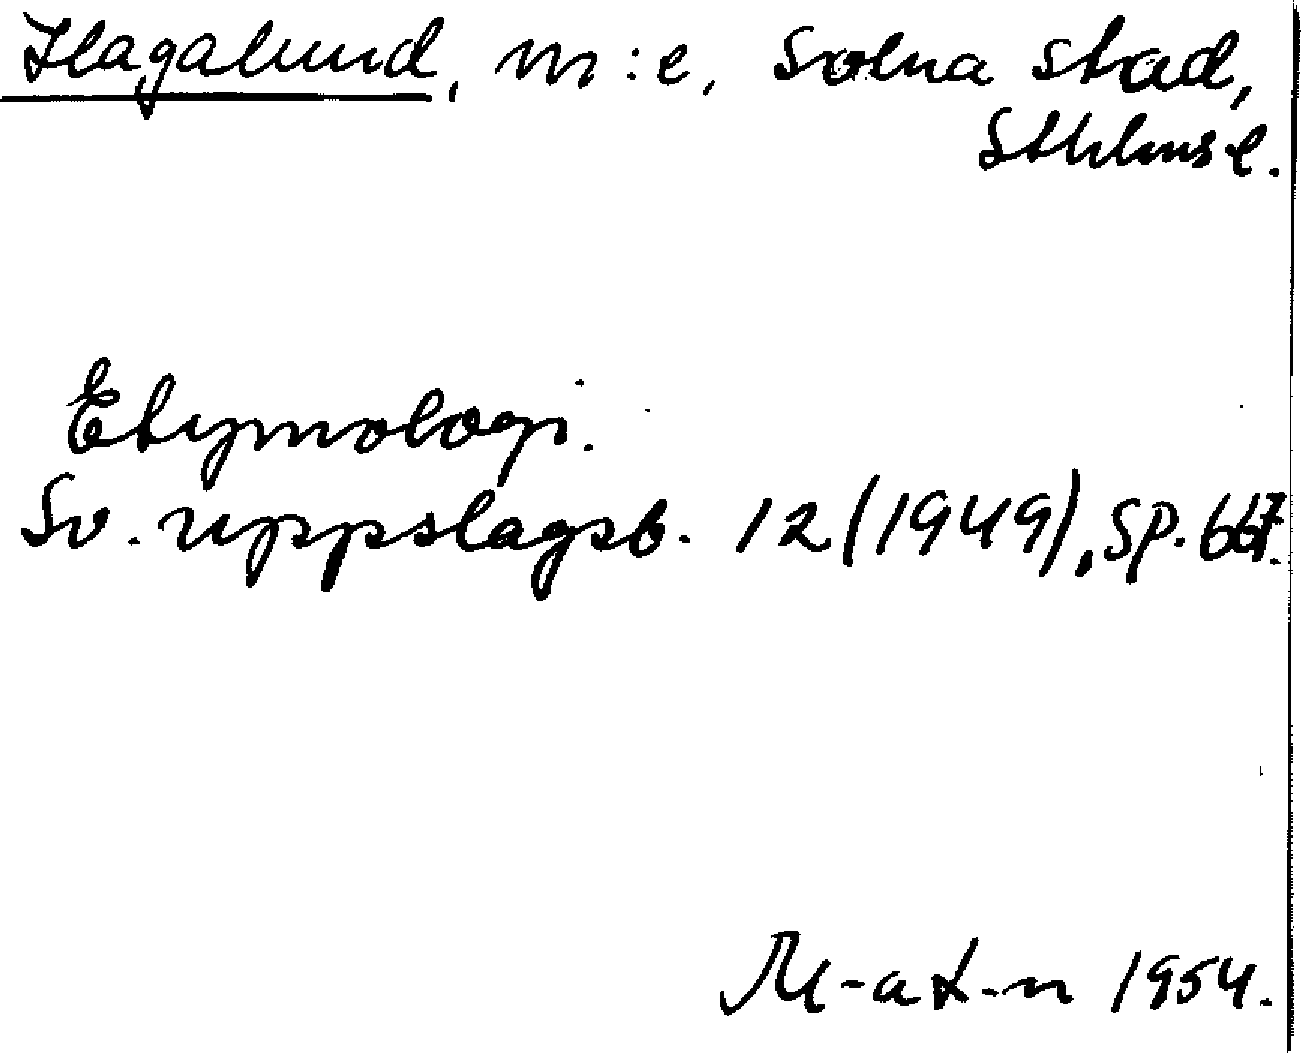 Hagalund, m:e, Solna stad,
Sthlms l.
Etymologi.
Sv. uppslagsb. 12 (1949), sp. 667.
M-a L-n 1954.